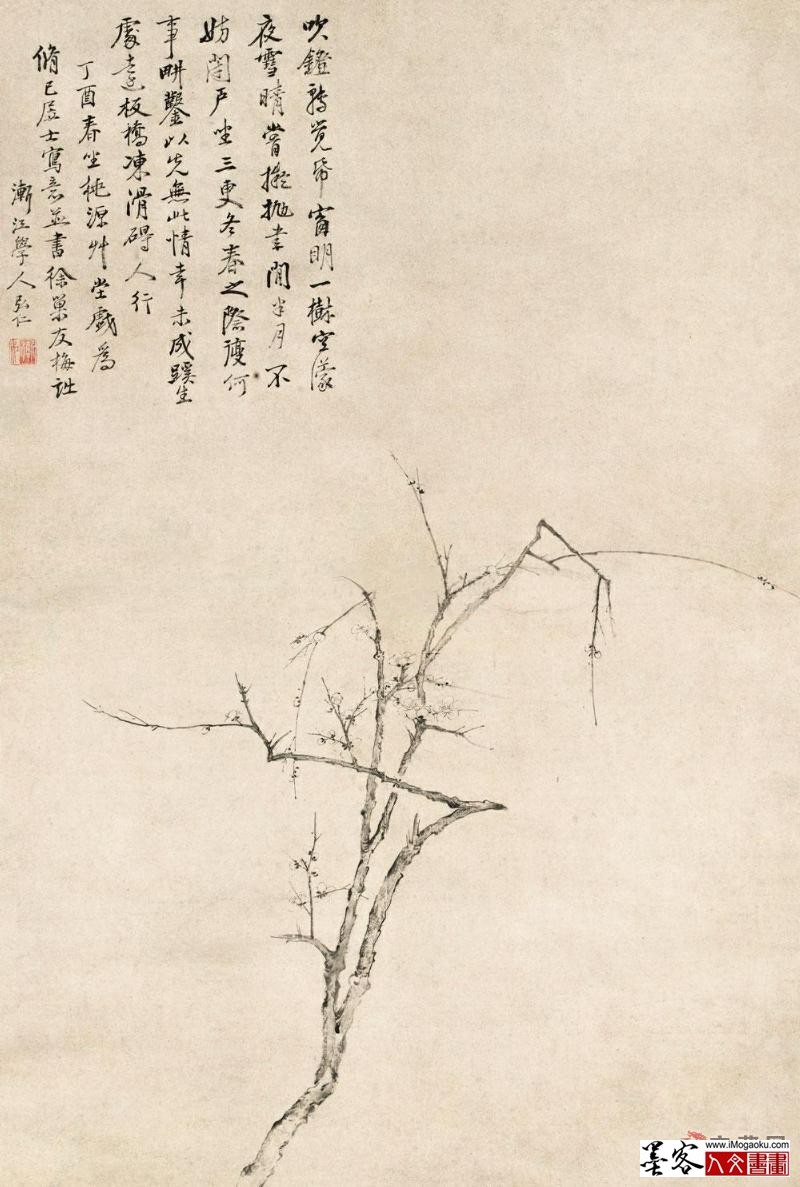 吹鐙轉覺帋窗明一樹空濛
夜雪晴嘗擬拋書閒半月不
妨閉戶坐三更冬春之際復何
事畊鑿以先無此情幸未成蹊生
處遠板橋凍滑碍人行
丁酉春坐桃源艸堂戲爲
脩已居士寫意並書徐巢友梅詩
漸江學人弘仁
www.iMogaoku.com
墨客人文書畫